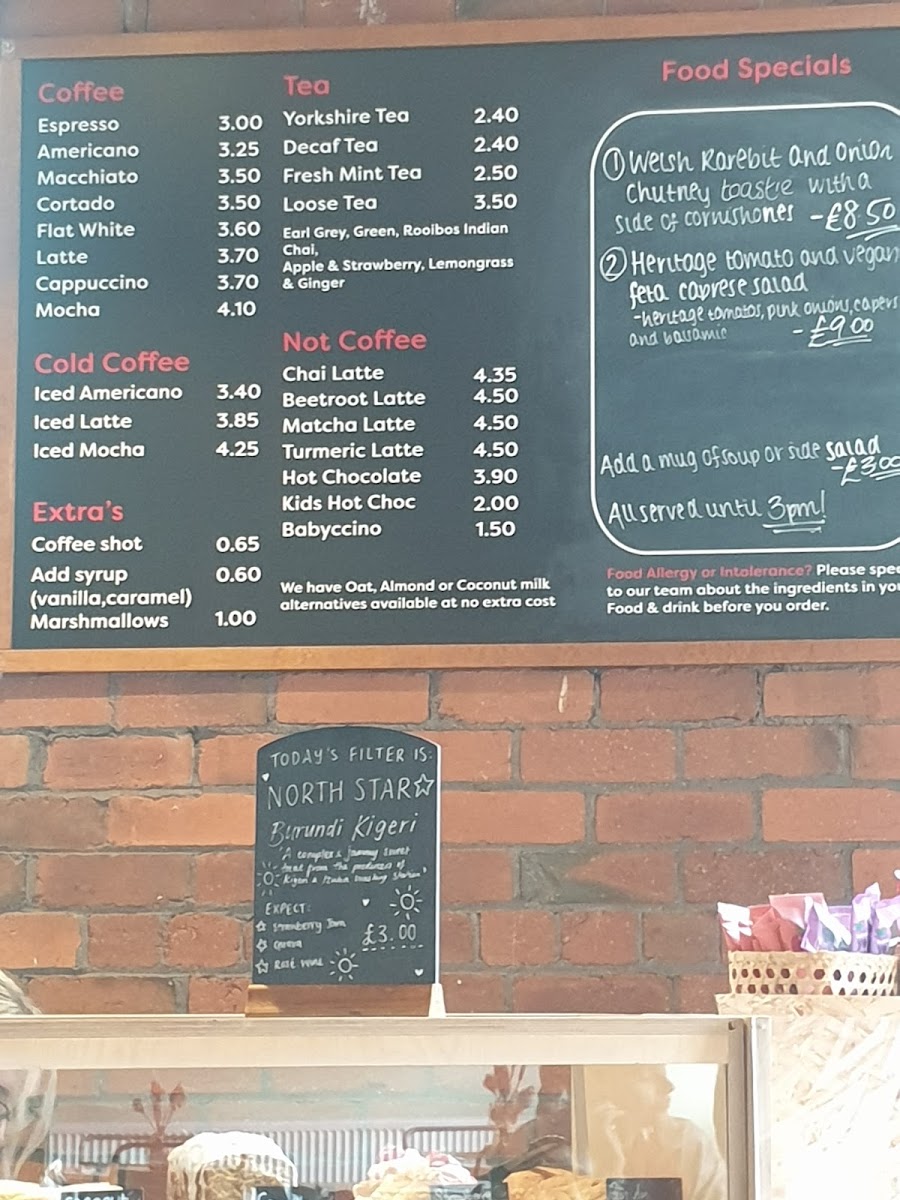 Coffee
Espresso 3.00
Americano 3.25
Macchiato 3.50
Cortado 3.50
Flat White 3.60
Latte 3.70
Cappuccino 3.70
Mocha 4.10
Cold Coffee
Iced Americano 3.40
Iced Latte 3.85
Iced Mocha 4.25
Extra's
Coffee shot 0.65
Add syrup 0.60
(vanilla,caramel)
Marshmallows 1.00
Tea
Yorkshire Tea 2.40
Decaf Tea 2.40
Fresh Mint Tea 2.50
Loose Tea 3.50
Earl Grey, Green, Rooibos Indian
Chai,
Apple & Strawberry, Lemongrass
& Ginger
Not Coffee
Chai Latte 4.35
Beetroot Latte 4.50
Matcha Latte 4.50
Turmeric Latte 4.50
Hot Chocolate 3.90
Kids Hot Choc 2.00
Babyccino 1.50
We have Oat, Almond or Coconut milk
alternatives available at no extra cost
Food Specials
① Welsh Rarebit and Onion
Chutney toastie with a
side of cornishones -£8.50
② Heritage tomato and vegan
feta caprese salad
-heritage tomatos, pink onions, capers
and balsamic - £9.00
Add a mug of soup or side salad
-£3.00
All served until 3pm!
Food Allergy or Intolerance? Please spe
to our team about the ingredients in yo
Food & drink before you order.
TODAY'S FILTER IS:
NORTH STAR
Burundi Kigeri
'A complex & jammy sweet
treat from the producers of
Kigeri & washing station'
EXPECT:
Strawberry Jam
Guava £3.00
Rosé wine